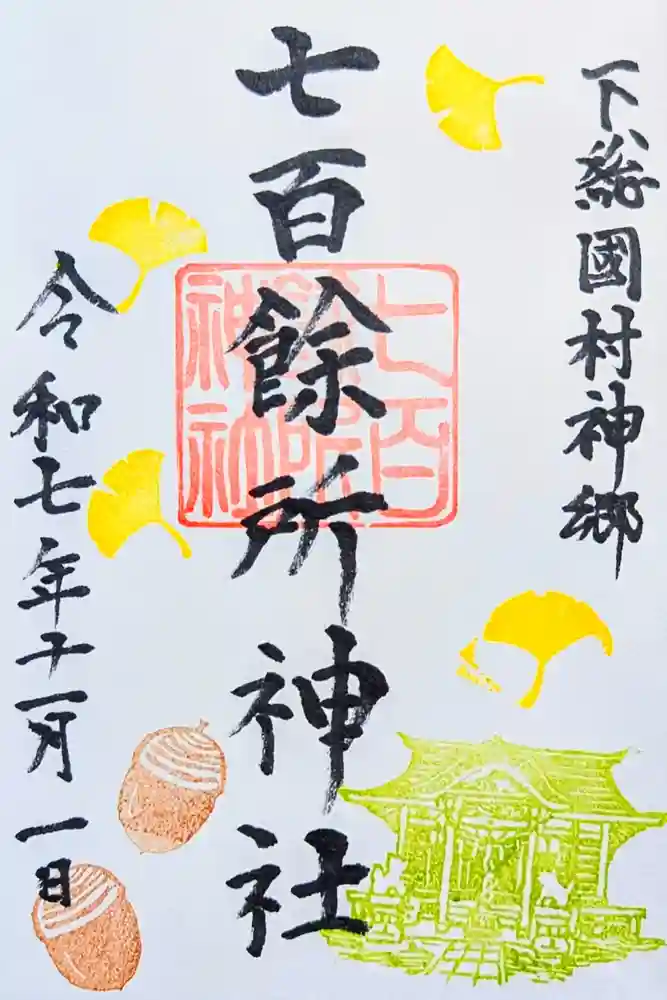 下総國村神郷
七百餘所神社
七百餘所神社
令和七年十一月一日